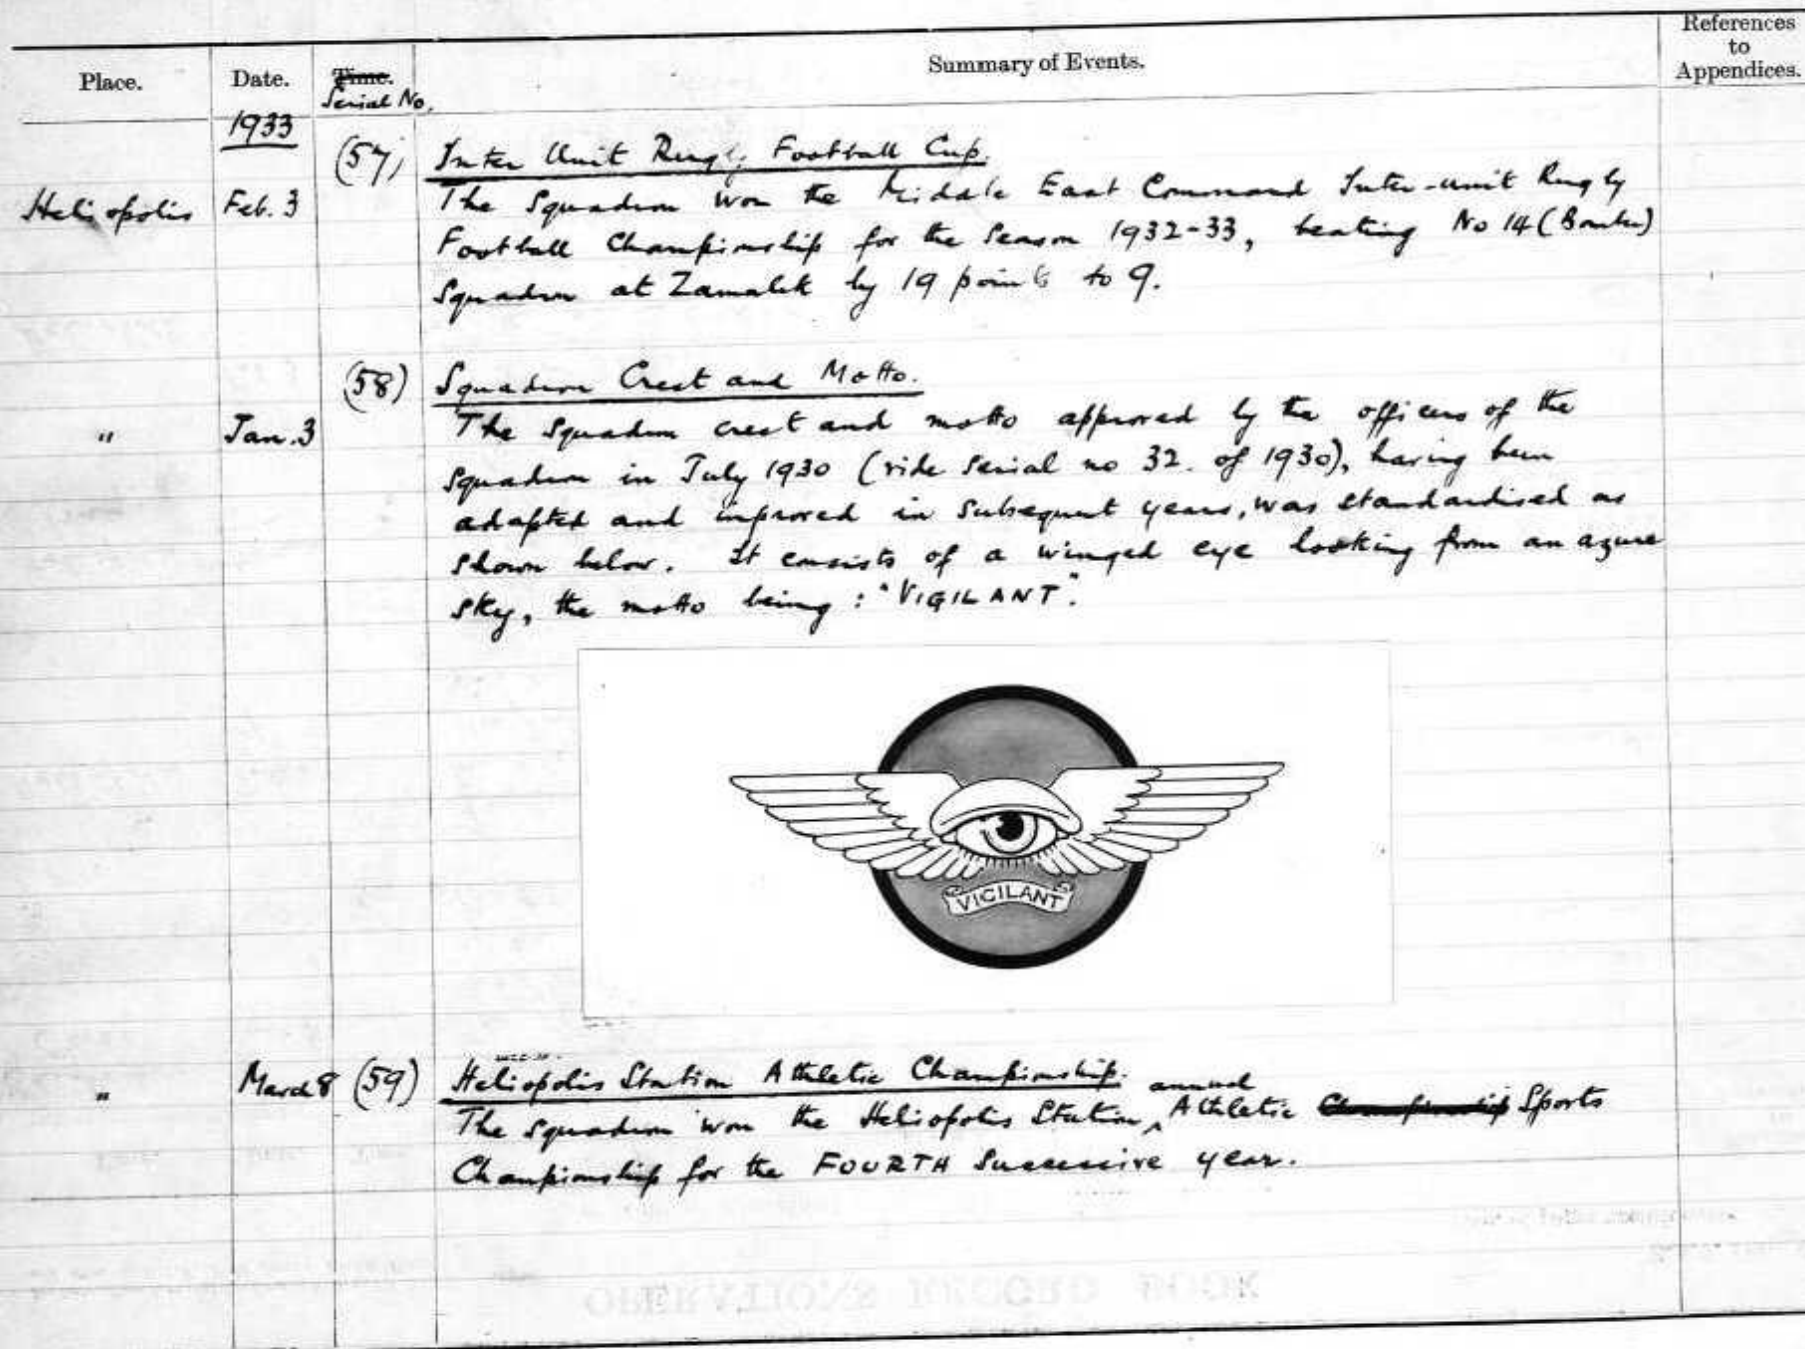 References
to
Appendices.
Place. Date. Time. Summary of Events.
Serial No.
1933
(57) Inter Unit Rugby Football Cup.
Heliopolis Feb. 3 The Squadron won the Middle East Command Inter-unit Rugby
Football Championship for the Season 1932-33, beating No 14 (Bomber)
Squadron at Zamalek by 19 points to 9.
(58) Squadron Crest and Motto.
" Jan. 3 The Squadron crest and motto approved by the officers of the
Squadron in July 1930 (vide Serial no 32. of 1930), having been
adapted and improved in subsequent years, was standardised as
shown below. It consists of a winged eye looking from an azure
sky, the motto being: "VIGILANT".
VIGILANT
" March 8 (59) Heliopolis Station Athletic Championship.
The Squadron won the Heliopolis Station annual Athletic Championship Sports
Championship for the FOURTH Successive year.
OPERATIONS RECORD BOOK